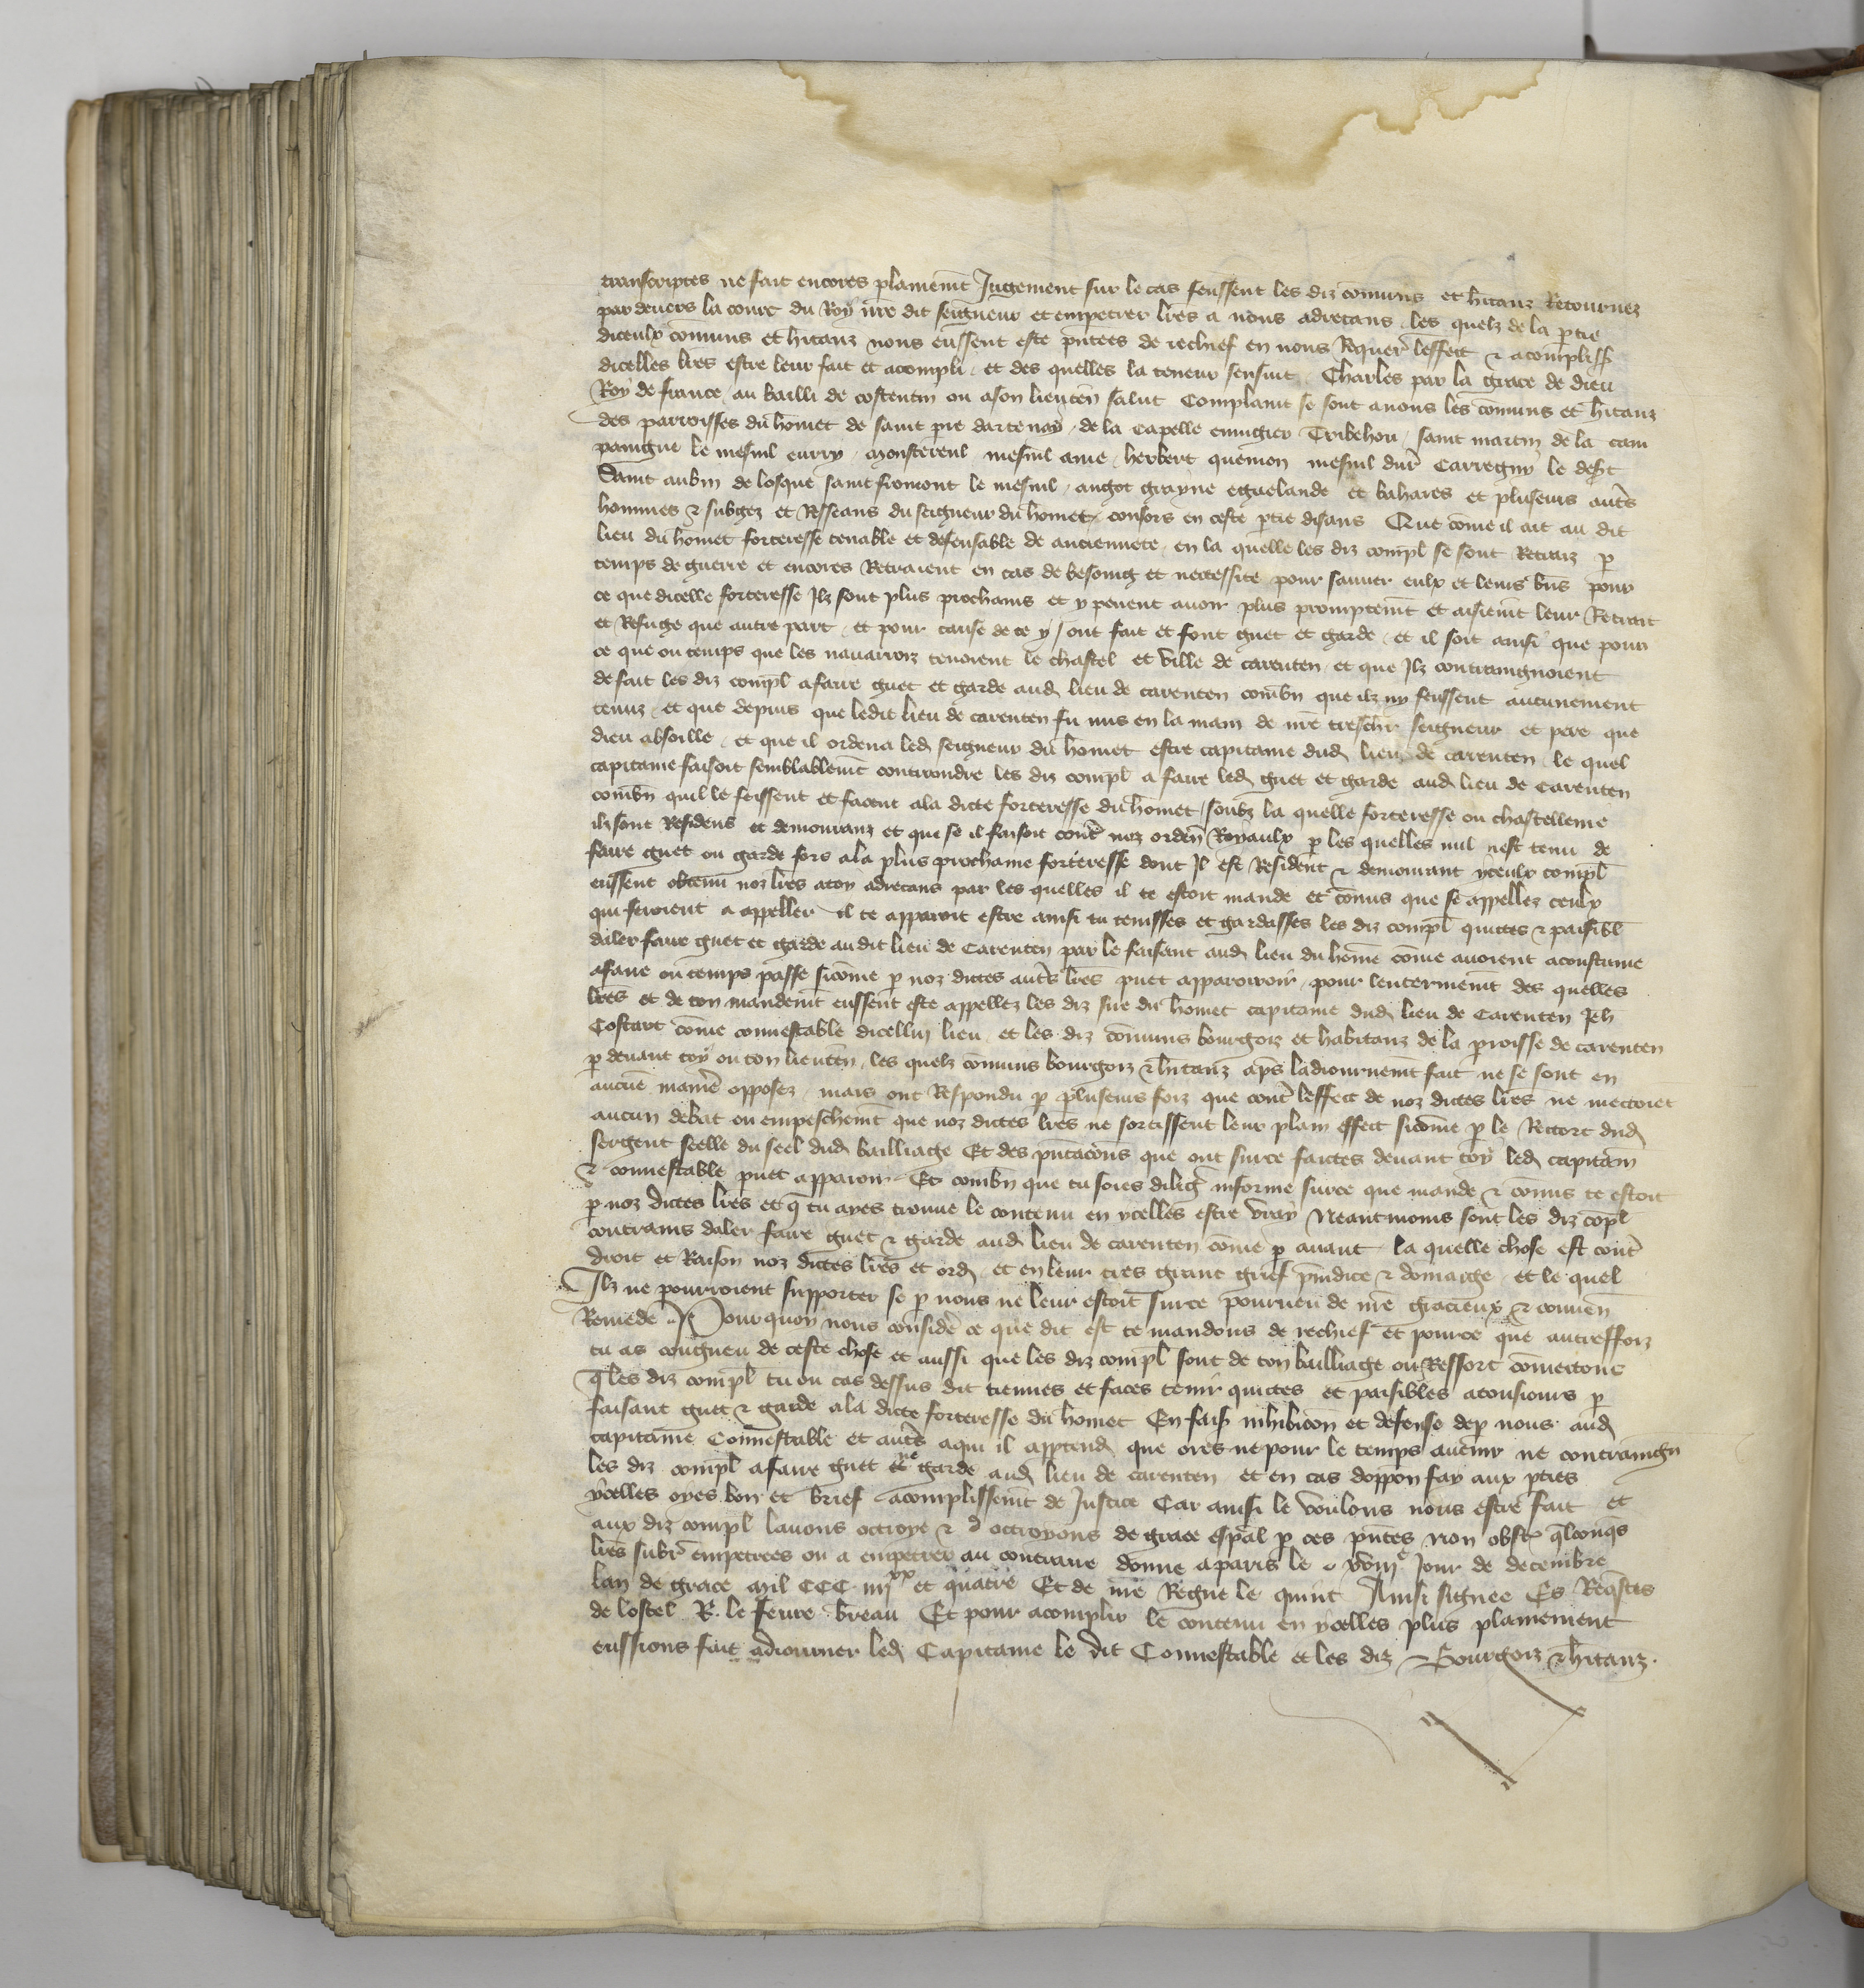 transcriptes ne fait encores plainemt Jugement sur le cas feussent les diz comuns et hitanz Retournez
par devers la court du Roy nre dit seigneur et empetrer lres a nous adrecans les quelx de la ptie
diceulx comuns et hitanz nous eussent este pntees de rechief en nous Requer leffect & acompliss
dicelles lres estre leur fait et acompli et des quelles la teneur sensuit Charles par la grace de dieu
Roy de france au bailli de costentin ou a son lieuten salut Complaint se sont a nous les comuns et hitanz
des parroisses du homet de saint pre dartenay de la Capelle enjugier Tribehou saint martin de la cam
paingne le mesnil eurry monstereul mesnil ame herbert quemon mesnil dur Carregny le desert
Saint aubin de losque saint fromont le mesnil angot grayne eguelande et bahares et pluseurs autrs
hommes & subgez et Resseans du seigneur du homet consors en ceste ptie disans Que come il ait au dit
lieu du homet forteresse tenable et defensable de anciennete en la quelle les diz compl se sont Retraiz p
temps de guerre et encores Retraient en cas de besoing et neccessite pour sauver eulx et leurs bns pour
ce que dicelle forteresse Ilz sont plus prochains et y pevent avoir plus promptemt et aisiemt leur Retrait
et Refuge que autre part et pour cause de ce y ont fait et font guet et garde et il soit ainsi que pour
ce que ou temps que les navarroiz tenoient le chastel et ville de carenten et que Ilz contraingnoient
de fait les diz compl a faire guet et garde aud lieu de carenten combn que ilz ny feussent aucunement
tenuz et que depuis que ledit lieu de carenten fu mis en la main de nre treschr seigneur et pere que
dieu absoille et que il ordena led seigneur du homet estre capitaine dud lieu de carenten le quel
capitaine faisoit semblablemt contraindre les diz compl a faire led guet et garde aud lieu de Carenten
combn quil le feissent et facent a la dicte forteresse du homet soubz la quelle forteresse ou chastellenie
ilz sont Residens et demourans et que se il faisoit contr noz orden Royaulx p les quelles nul nest tenu de
faire guet ou garde fors a la plus prochaine forteresse dont Il est Resident & demourant yceulx compl
eussent obtenu noz lres a toy adrecans par les quelles il te estoit mande et comis que se appellez ceulx
qui seroient a appeller il te apparoit estre ainsi tu tenisses et gardasses les diz compl quictes & paisibl
daler faire guet et garde au dit lieu de Carenten par le faisant aud lieu du home come avoient acoustume
a faire ou temps passe sicome p noz dictes autrs lres puet apparoiroir pour lenterinemt des quelles
lres et de ton mandemt eussent este appellez les diz sire du homet capitaine dud lieu de Carenten Jeh
Costart come connestable dicellui lieu et les diz comuns bourgoiz et habitanz de la proisse de carenten
p devant toy ou ton lieuten les quelx comuns bourgoiz & hitanz aps ladiournemt fait ne se sont en
aucue manie opposez mais ont Respondu p pluseurs foiz que contr leffect de noz dictes lres ne mectoiet
aucun debat ou empeschemt que noz dictes lres ne sortissent leur plain effect sicome p le Rettort dud
sergent seelle du seel dud bailliage Et des pntacions que ont sur ce faictes devant toy led capitain
& connestable puet apparoir Et combn que tu soies dilig informe sur ce que mande & comis te estoit
p noz dictes lres et q tu ayes trouve le contenu en ycelles estre vray Neantmoins sont les diz copl
contrains daler faire guet & garde aud lieu de carenten come p avant la quelle chose est contr
droit et Raison noz dictes lres et ord et en leur tres grant grief preiudice & domaige et le quel
Ilz ne pourroient supporter se p nous ne leur estoit sur ce pourveu de nre gracieux & conven
Remede Pour quoy nous consider ce que dit est te mandons de rechief et pource que autreffoiz
tu as congneu de ceste chose et aussi que les diz compl sont de ton bailliage ou Ressort comectons
q les diz compl tu ou cas dessus dit tiennes et faces tenir quictes et paisibles a tousiours p
faisant guet & garde a la dicte forteresse du homet En fais inhibicon et defense dep nous aud
capitaine Connestable et autrs a qui il apptend que ores ne pour le temps avenir ne contraingn
les diz compl a faire guet ne garde aud lieu de carenten et en cas doppon fay aux pties
ycelles oyes bon et brief acomplissemt de Justice Car ainsi le voulons nous estre fait et
aux diz compl lavons octroye & octroyons de grace espal p ces pntes non obst qlconqs
lres subr empetrees ou a empetrer au contraire donne a paris le xviije Jour de decembre
lan de grace mil CCC iiijxx et quatre Et de nre Regne le quint Ainsi signee Es Reqstes
de lostel R. le fevre breau Et pour acomplir le contenu en ycelles plus plainement
eussions fait adiourner led Capitaine le dit Connestable et les diz Bourgoiz & hitanz